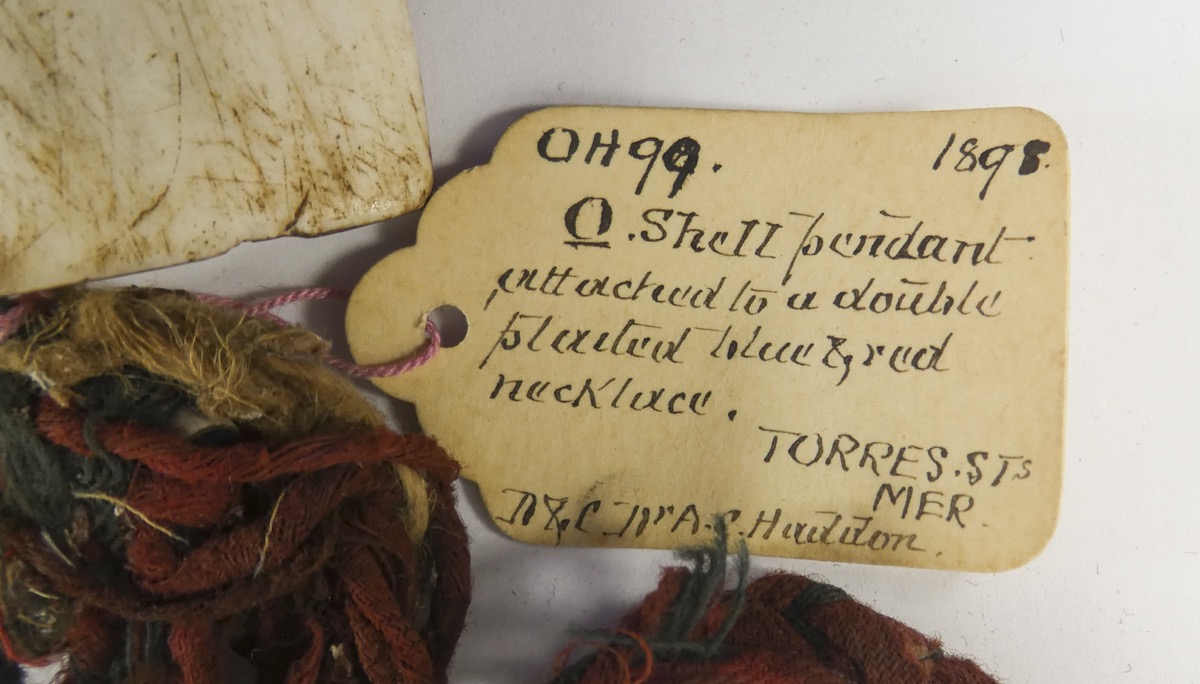 OH99. 1898.
O. Shell pendant
attached to a double
plaited blue & red
necklace.
TORRES. STs
MER.
D & C Dr A. C. Haddon.